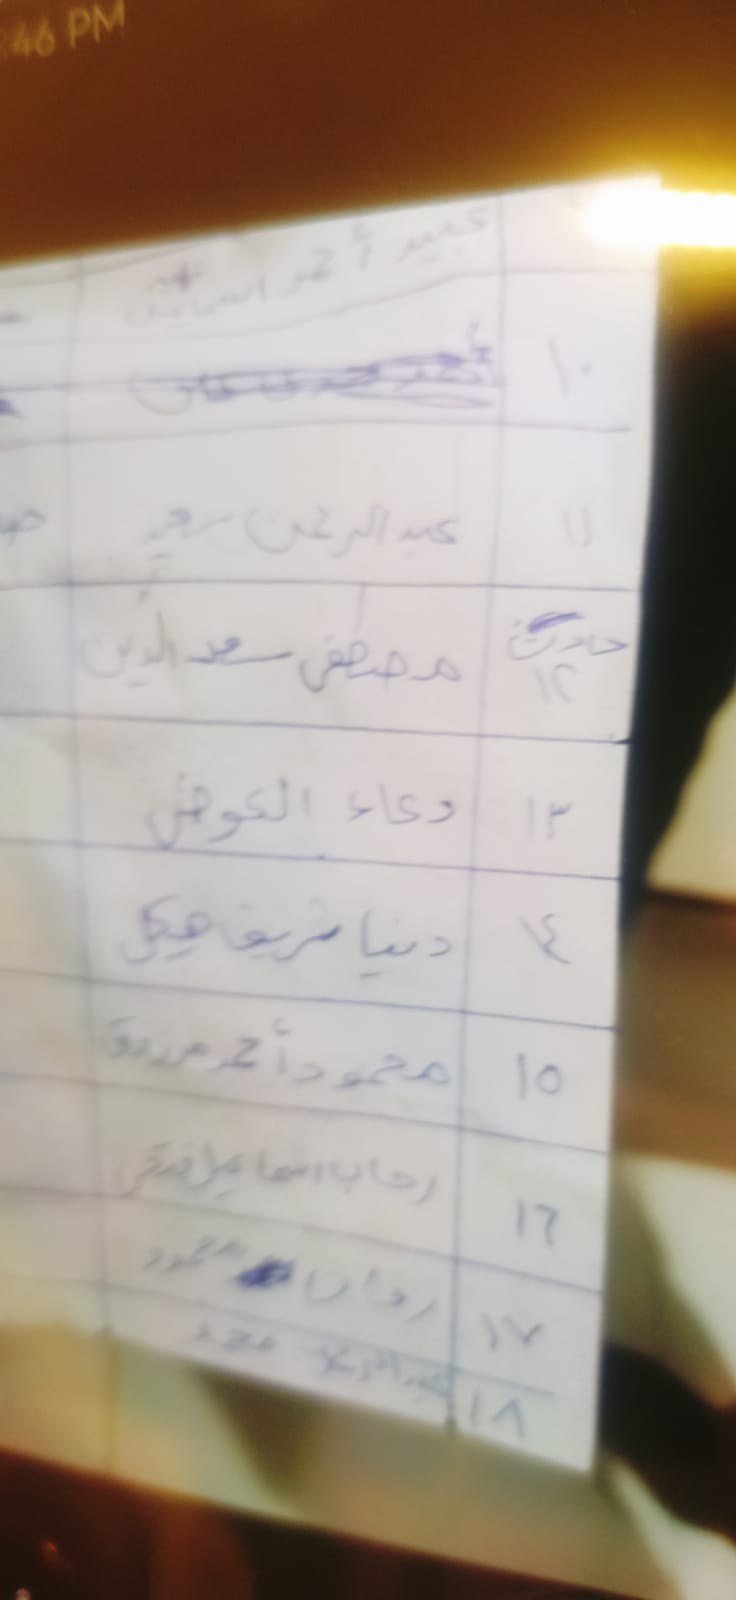 :46 PM
عبير أحمد اسماعيل
١٠
١١ عبد الرحمن سعيد
حادث
١٢ مصطفى سعد الدين
١٣ دعاء العوضي
١٤ دنيا شريف هيكل
١٥ محمود أحمد مرزوق
١٦ رحاب اسماعيل
١٧ محمود
١٨ محمد